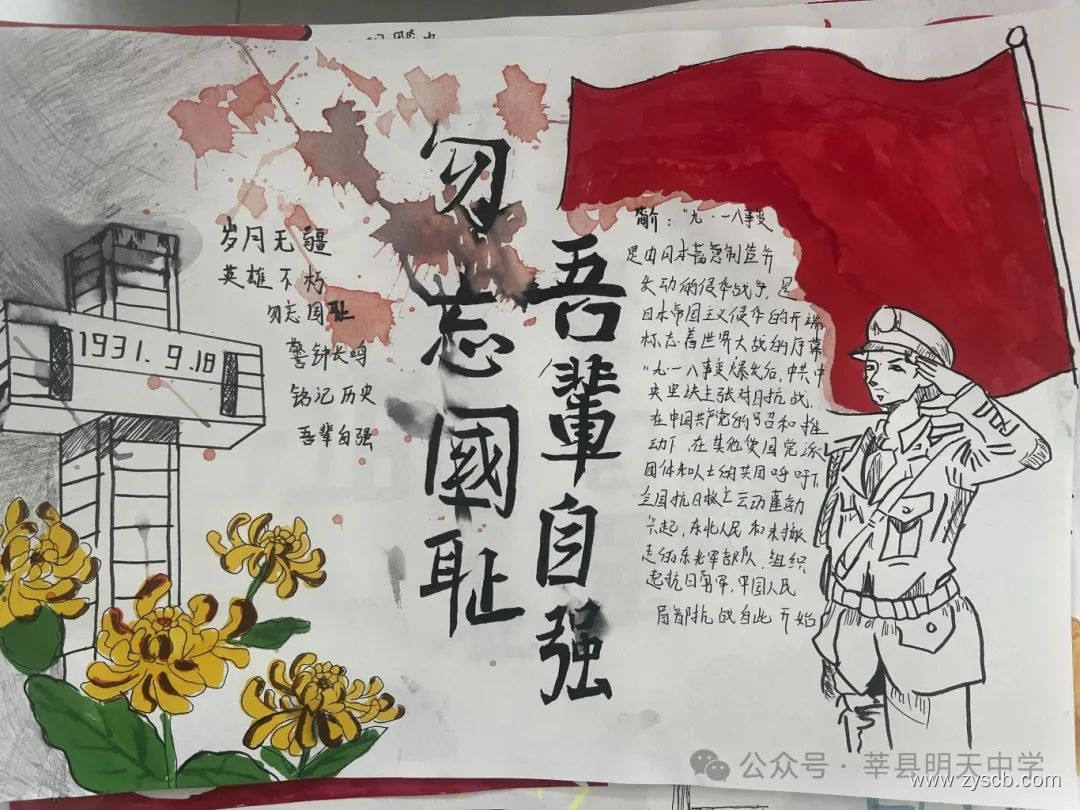 勿忘國恥
吾輩自强
岁月无疆
英雄不朽
勿忘国耻
警钟长鸣
铭记历史
吾辈自强
1931.9.18
简介：“九·一八事变
是由日本蓄意制造并
发动的侵华战争，是
日本帝国主义侵华的开端
标志着世界大战的序幕
“九一八事变爆发后，中共中
央坚决主张对日抗战，
在中国共产党的号召和推
动下，在其他爱国党派
团体和人士的共同呼吁下
全国抗日救亡运动蓬勃
兴起，东北人民和未撤
走的东北军部队，组织
起抗日勇军，中国人民
局部抗战自此开始
公众号·莘县明天中学
www.zyscb.com